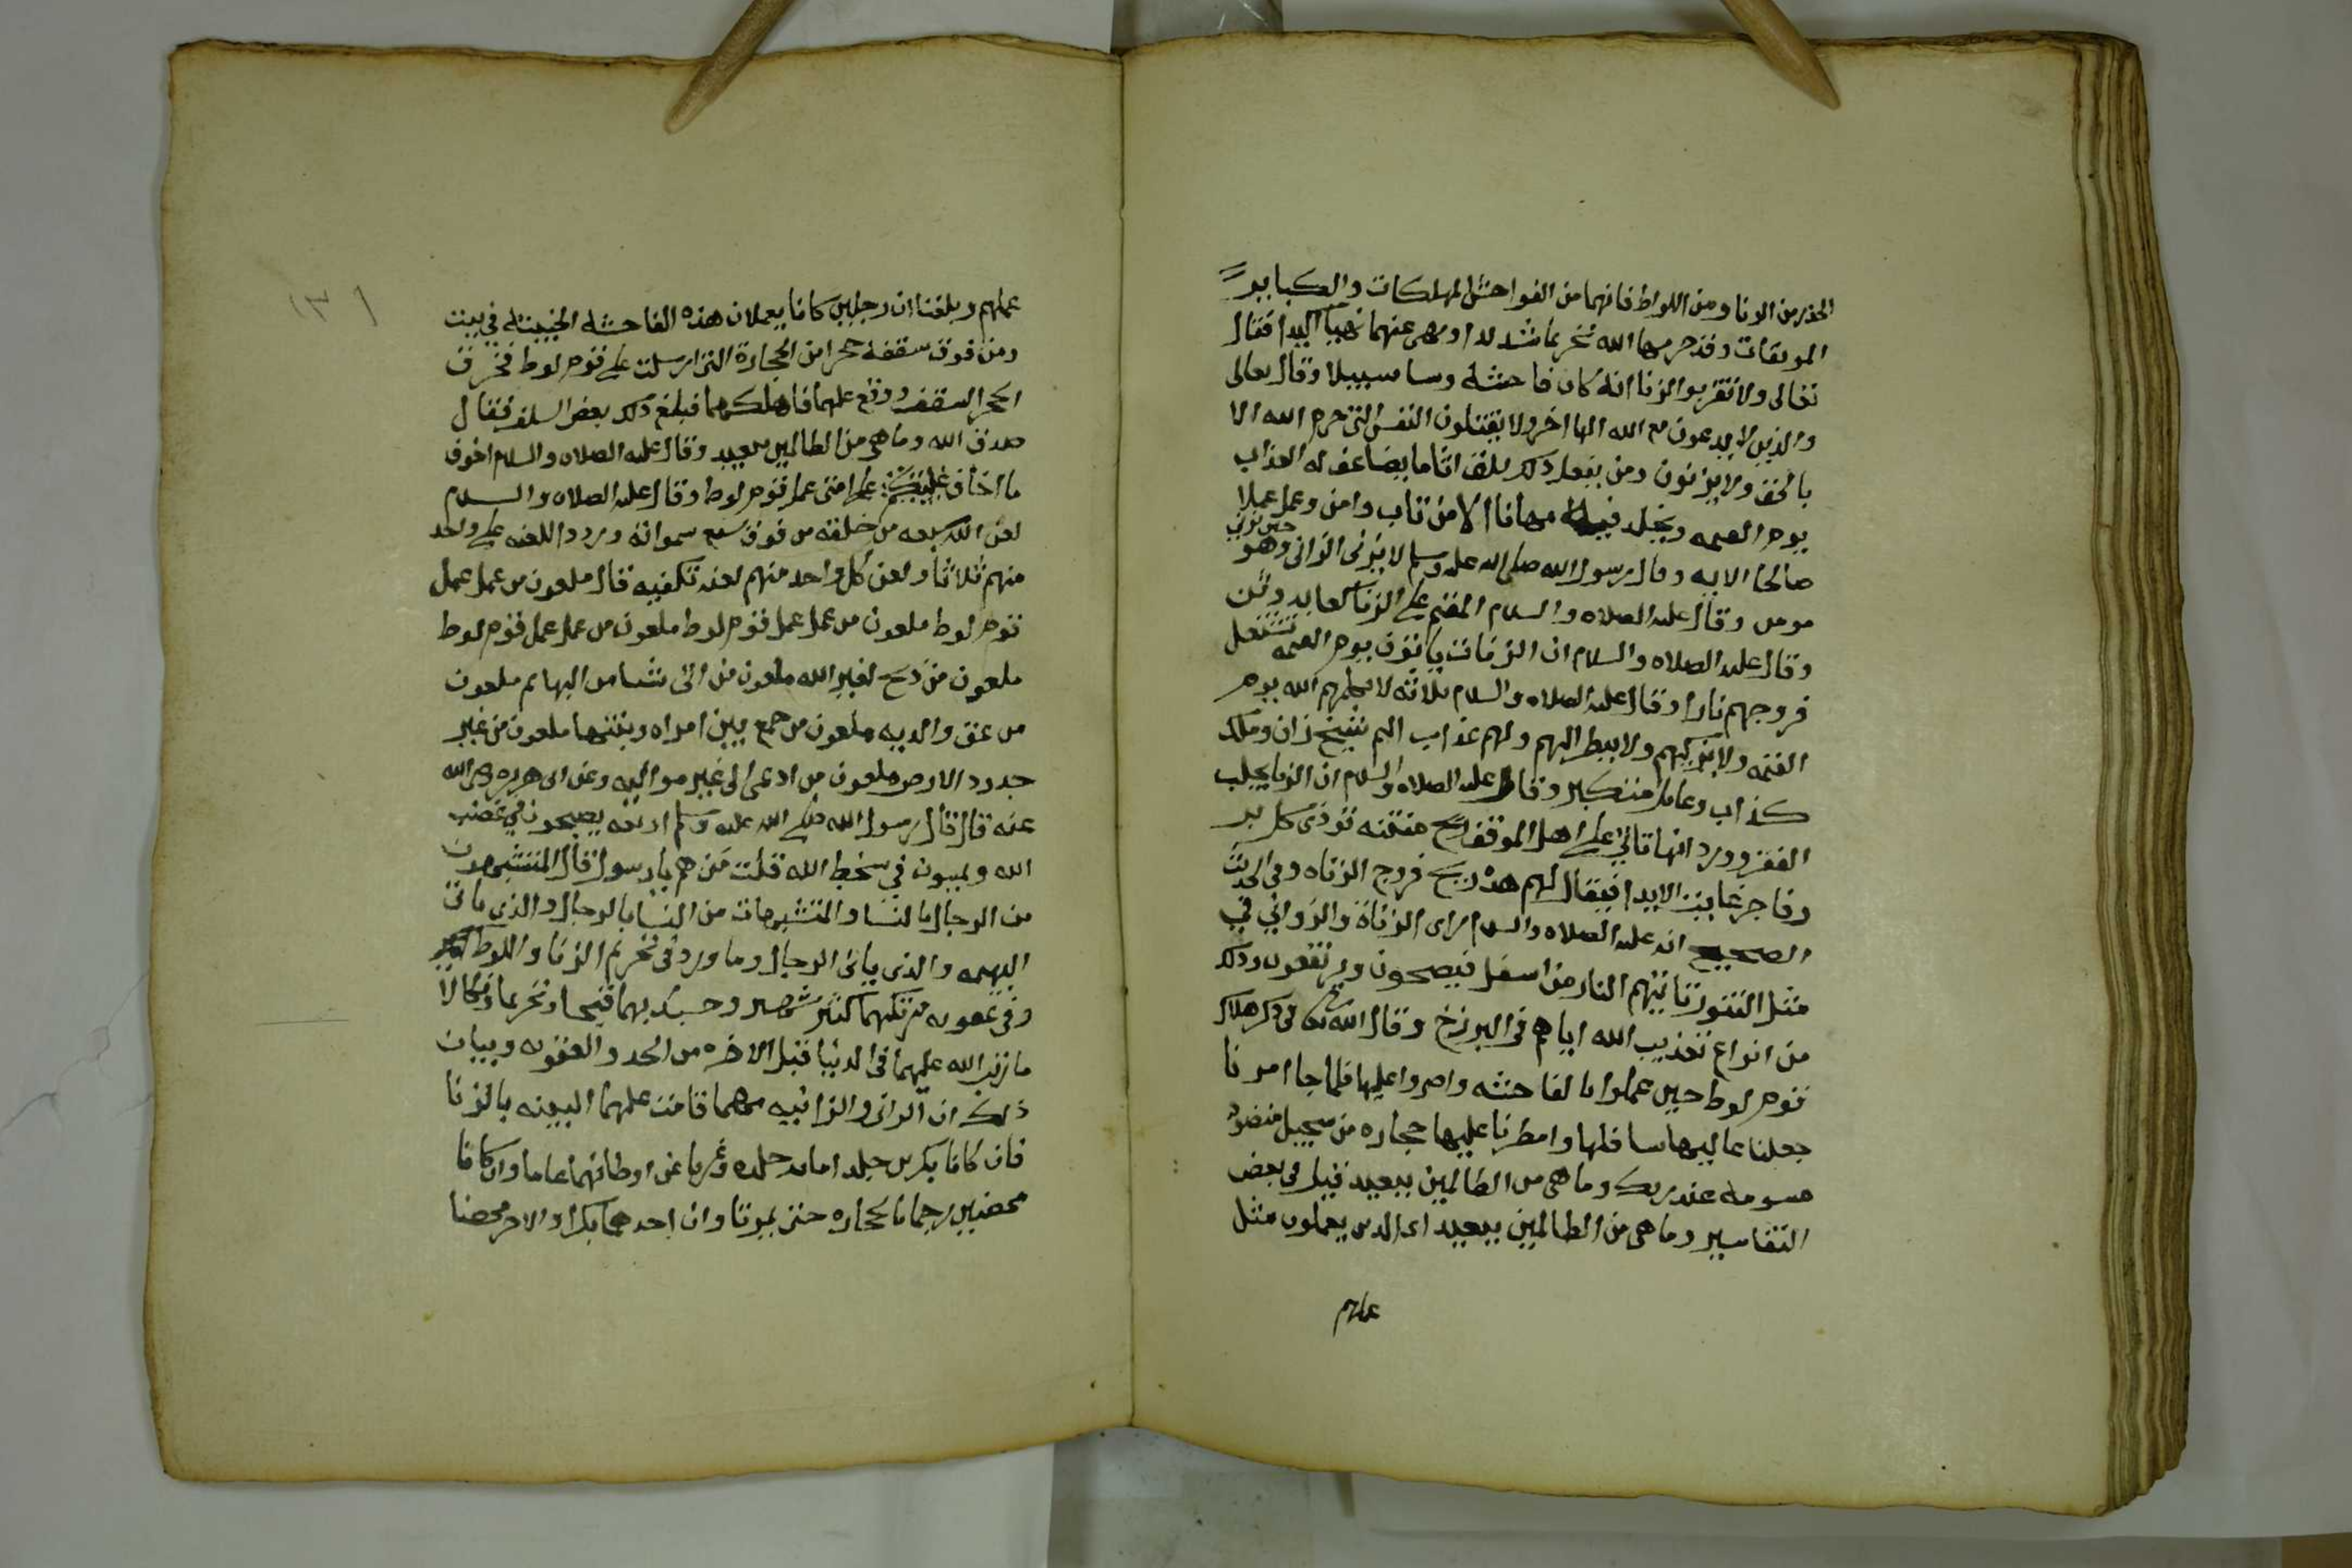 الحذر من الزنا ومن اللواط فانهما من الفواحش المهلكات والكباير
الموبقات وقد حرمهما الله تحريما شديدا ونهى عنهما نهيا اكيدا فقال
تعالى ولا تقربوا الزنا انه كان فاحشة وسا سبيلا وقال تعالى
والذين لا يدعون مع الله الها اخر ولا يقتلون النفس التي حرم الله الا
بالحق ولا يزنون ومن يفعل ذلك يلقى اثاما يضاعف له العذاب
يوم القيمه ويخلد فيه مهانا الا من تاب وامن وعمل عملا
صالحا الايه وقال رسول الله صلى الله عليه وسلم لا يزني الزاني حين يزني وهو
مومن وقال عليه الصلاه والسلام المقيم على الزنا كعابد وثن
وقال عليه الصلاه والسلام ان الزناة ياتون يوم القيمه تشتعل
فروجهم نارا وقال عليه الصلاه والسلام ثلاثه لا يكلمهم الله يوم
القيمه ولا يزكيهم ولا ينظر اليهم ولهم عذاب اليم شيخ زان وملك
كذاب وعامل متكبر وقال عليه الصلاه والسلام ان الزنا يجلب
الفقر وورد انها تاتي على اهل الموقف ريح منتنه توذي كل بر
وفاجر غاية الايذا فيقال لهم هذه ريح فروج الزناه وفي الحديث
الصحيح انه عليه الصلاه والسلام راى الزناة والزواني في
مثل التنور تاتيهم النار من اسفل فيصيحون ويرتفعون وذلك
من انواع تعذيب الله اياهم في البرزخ وقال الله تعالى في ذكر هلاك
قوم لوط حين عملوا بالفاحشه واصروا عليها فلما جا امرنا
جعلنا عاليها سافلها وامطرنا عليها حجاره من سجيل منضود
مسومه عند ربك وما هي من الظالمين ببعيد قيل في بعض
التفاسير وما هي من الظالمين ببعيد اي الذين يعملون مثل
عملهم
١٣١
عملهم وبلغنا ان رجلين كانا يعملان هذه الفاحشة الخبيثة في بيت
ومن فوق سقفه حجرا من الحجارة التي ارسلت على قوم لوط فخرق
الحجر السقف ووقع عليهما فاهلكهما فبلغ ذلك بعض السلف فقال
صدق الله وما هي من الظالمين ببعيد وقال عليه الصلاه والسلام اخوف
ما اخاف عليكم على امتي عمل قوم لوط وقال عليه الصلاه والسلام
لعن الله سبعه من خلقه من فوق سبع سمواته وردد اللعنه على واحد
منهم ثلاثا ولعن كل واحد منهم لعنه تكفيه قال ملعون من عمل عمل
قوم لوط ملعون من عمل عمل قوم لوط ملعون من عمل عمل قوم لوط
ملعون من ذبح لغير الله ملعون من اتى شيا من البهايم ملعون
من عق والديه ملعون من جمع بين امراه وبنتها ملعون من غير
حدود الارض ملعون من ادعى الى غير مواليه وعن ابي هريره رضي الله
عنه قال قال رسول الله صلى الله عليه وسلم اربعه يصبحون في غضب
الله ويمسون في سخط الله قلت من هم يا رسول الله قال المتشبهون
من الرجال بالنسا والمتشبهات من النسا بالرجال والذي ياتي
البهيمه والذي ياتي الرجال وما ورد في تحريم الزنا واللواط
وفي عقوبه مرتكبهما كثير شهير وحسبك بهما قبحا وتحريما ونكالا
ما رتب الله عليهما في الدنيا قبل الاخره من الحد والعقوبه وبيان
ذلك ان الزاني والزانيه مهما قامت عليهما البينه بالزنا
فان كانا بكرين جلدا مايه جلده وغربا عن اوطانهما عاما وان كانا
محصنين رجما بالحجاره حتى يموتا وان احدهما بكرا والاخر محصنا